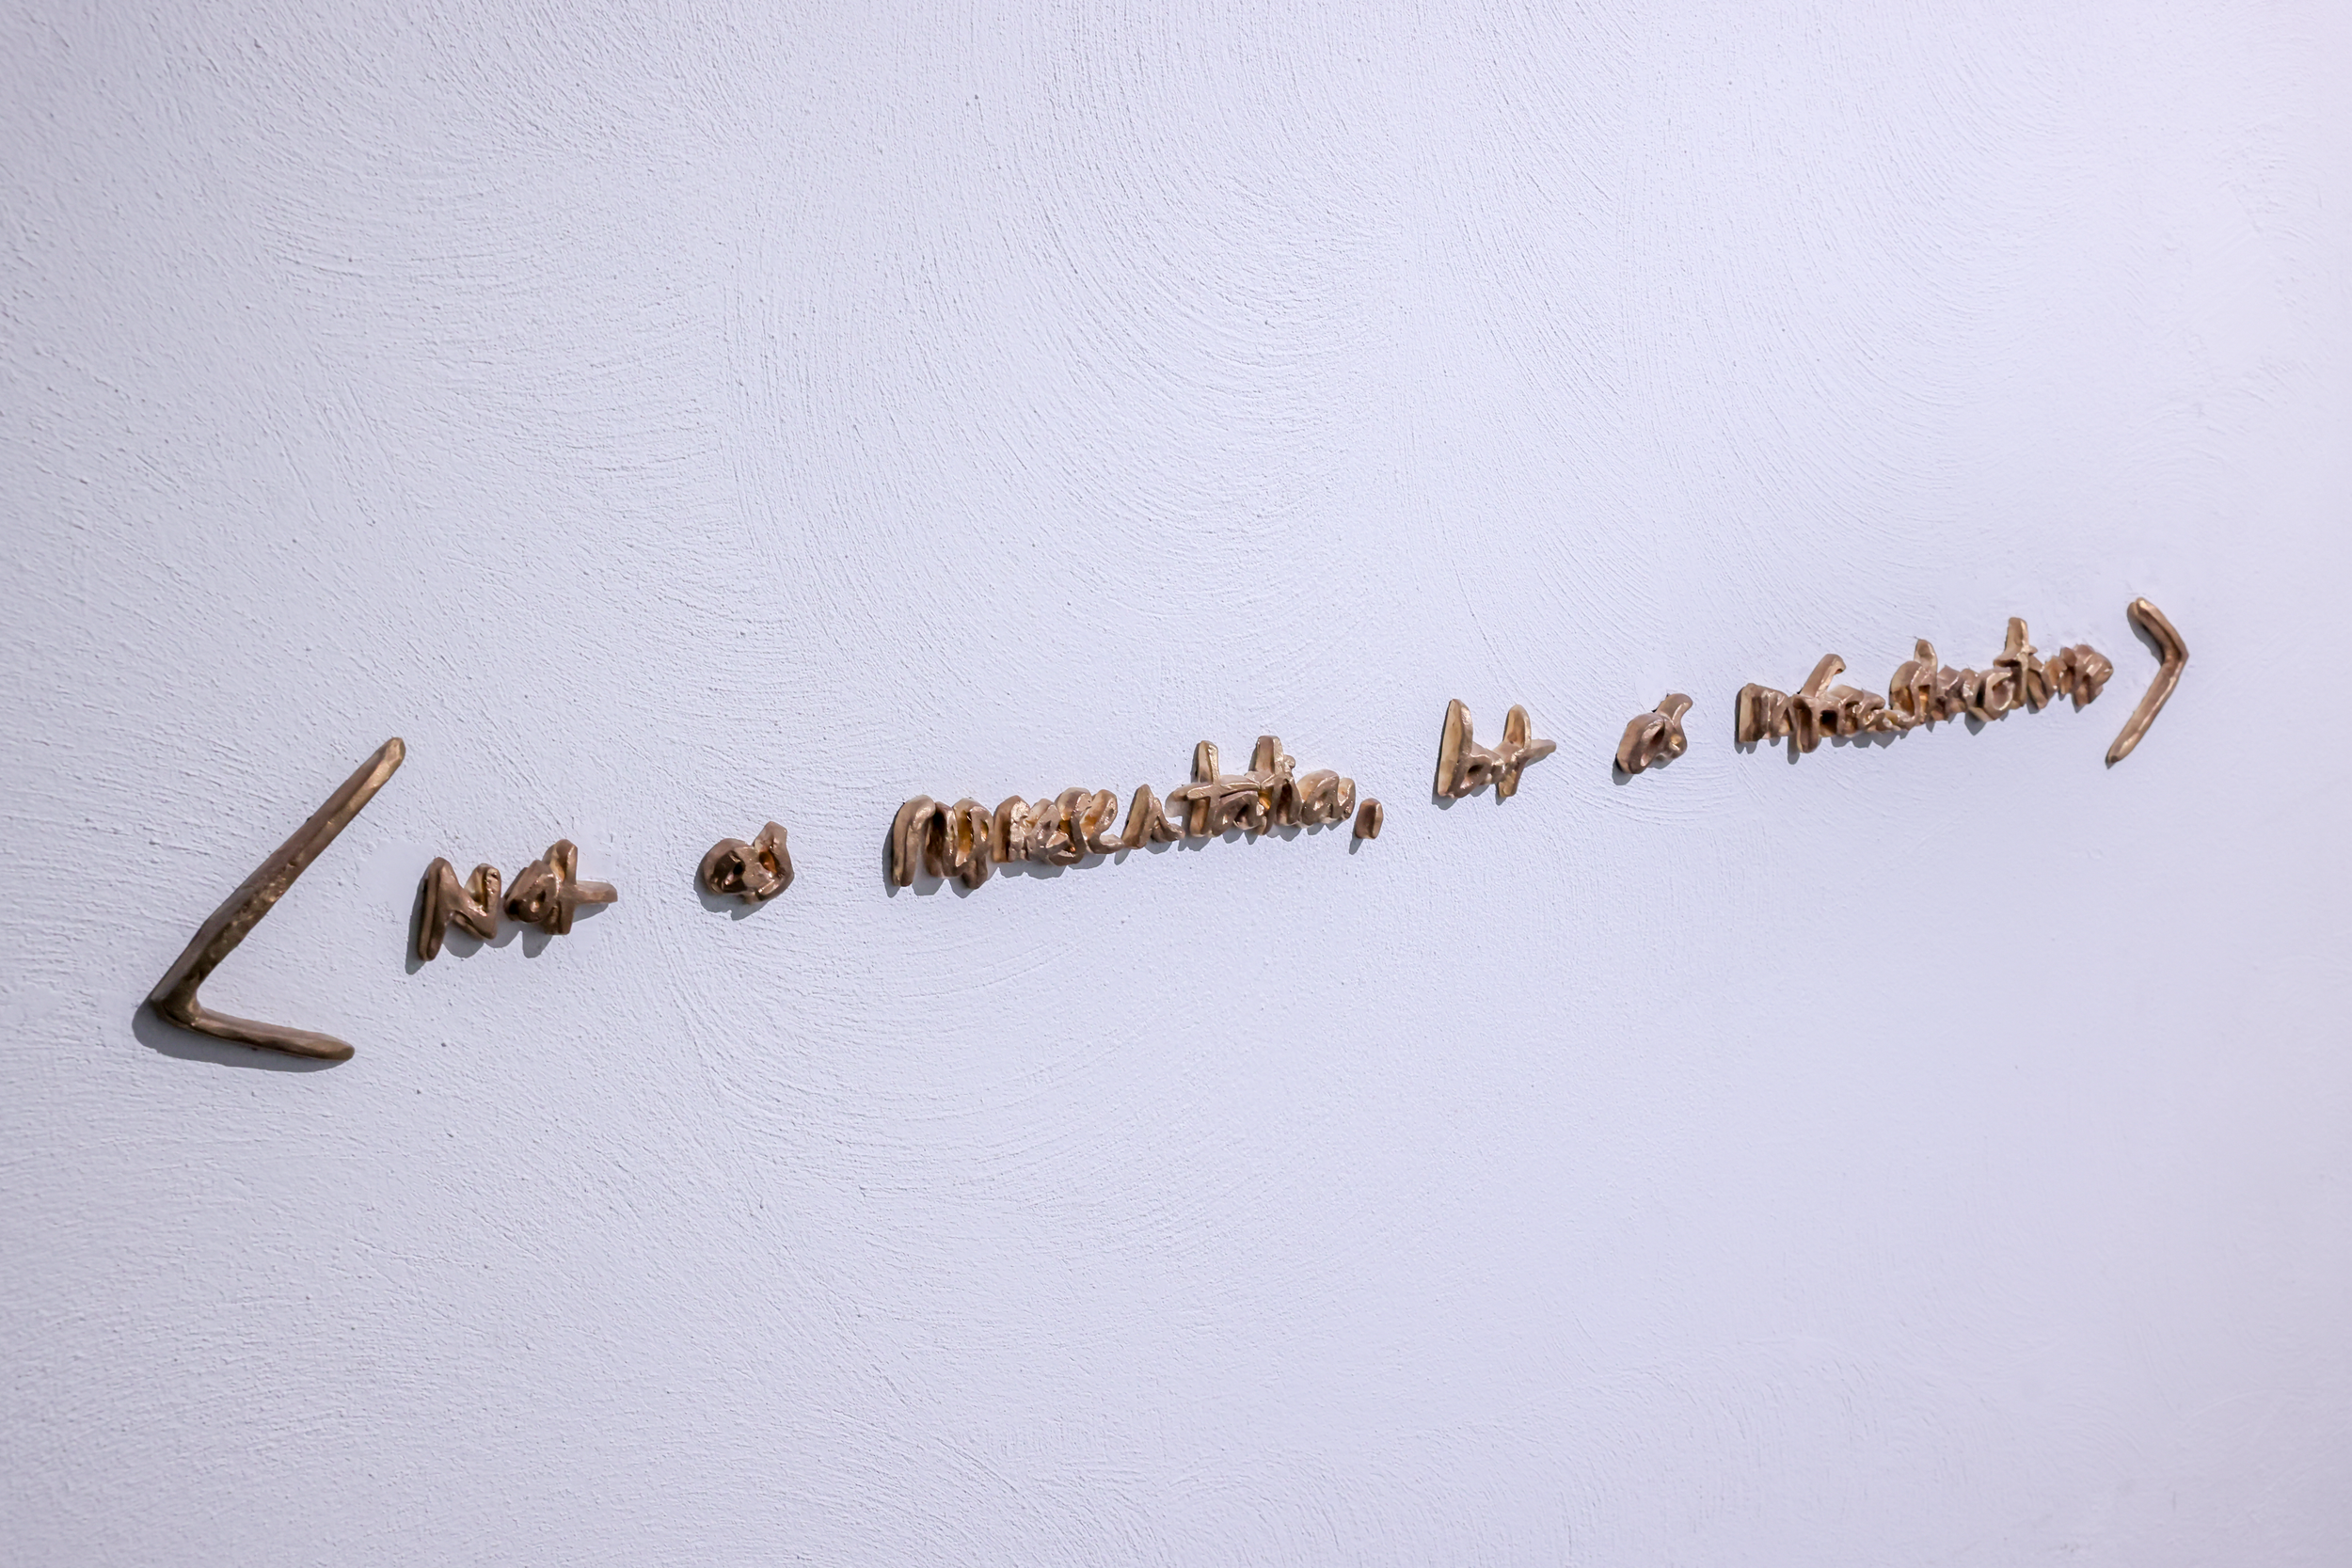 < Not as representation, but as infrastructure >